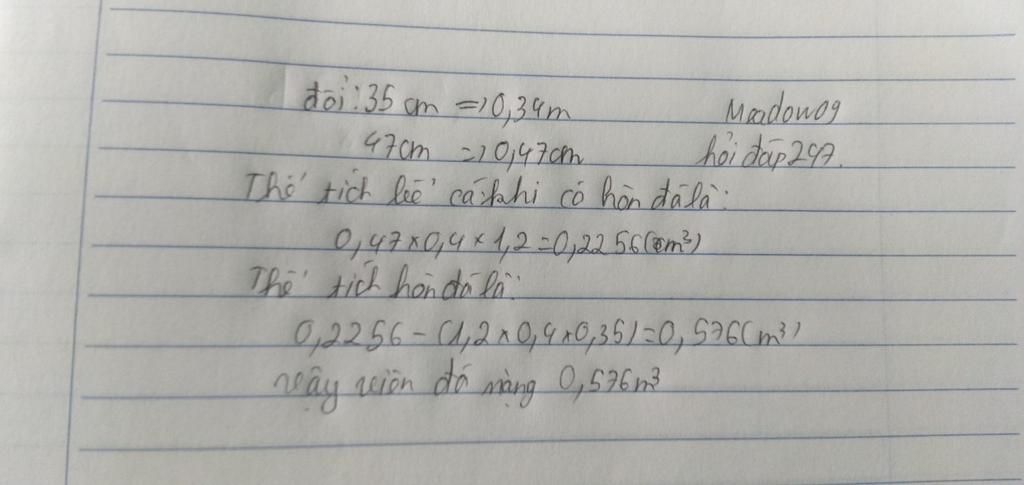 đổi: 35 cm => 0,34m
Meadow09
47cm => 0,47cm
hỏi đáp 247.
Thể tích bể cá khi có hòn đá là:
0,47 x 0,4 x 1,2 = 0,2256 (m³)
Thể tích hòn đá là:
0,2256 - (1,2 x 0,4 x 0,35) = 0,576 (m³)
Vậy viên đá nặng 0,576m³